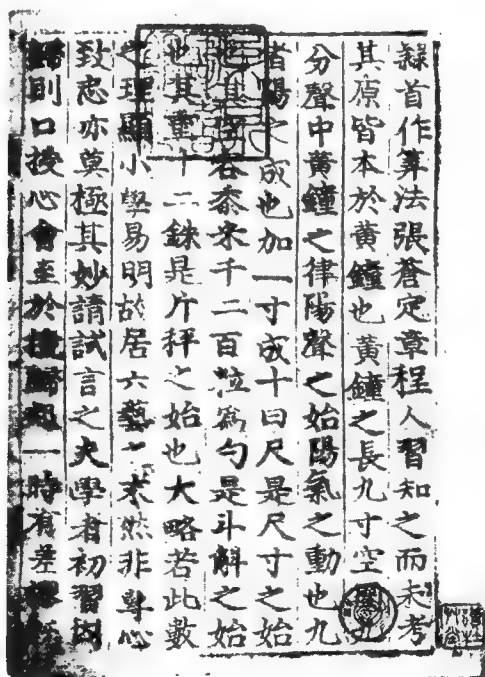 隸首作筭法張蒼定章程人習知之而未考
其原皆本於黄鐘也黄鐘之長九寸空九
分聲中黄鐘之律陽聲之始陽氣之動也九
者陽之成也加一寸成十曰尺是尺寸之始
容黍米千二百粒爲勺是斗斛之始
也其重十二銖是斤秤之始也大略若此數
之理顯小學易明故居六藝之末然非單心
致志亦莫極其妙請試言之夫學者初習
則口授心會至於一時有差